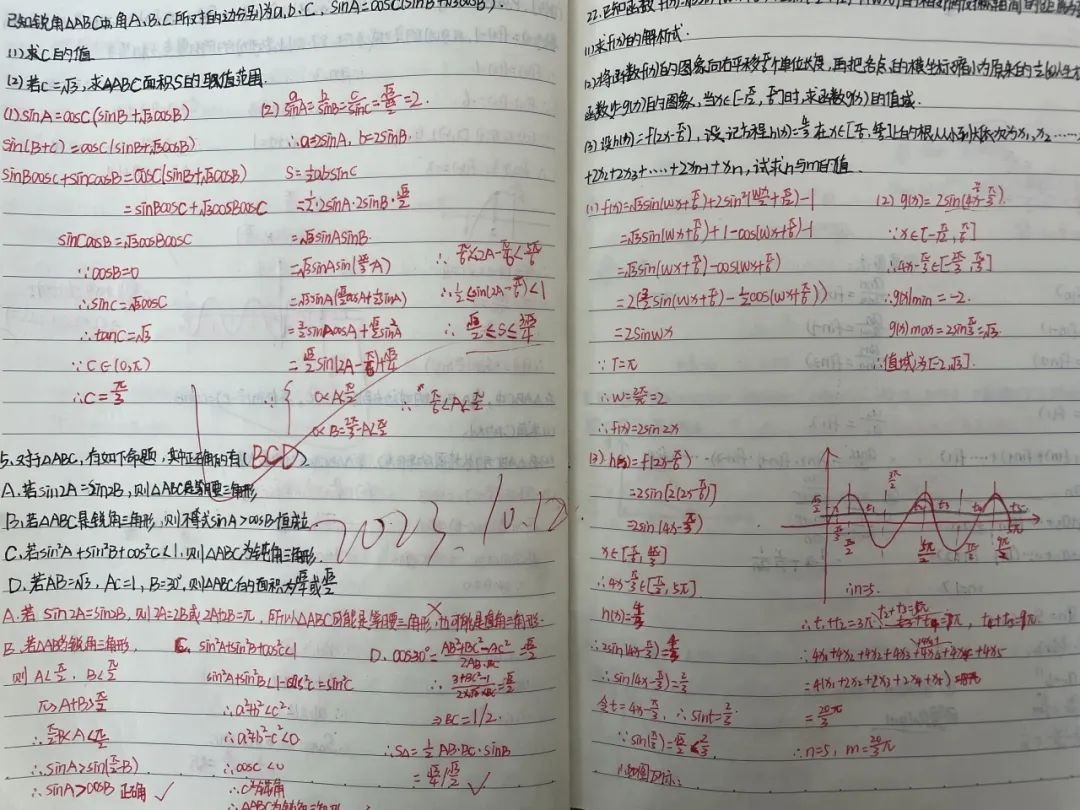 已知锐角△ABC中,角A、B、C所对的边分别为a、b、c, sinA=cosC(sinB+√3cosB).
(1)求C的值
(2)若c=√3,求△ABC面积S的取值范围.
(1) sinA=cosC(sinB+√3cosB)
sin(B+C)=cosC(sinB+√3cosB)
sinBcosC+sinCcosB=cosC(sinB+√3cosB)
=sinBcosC+√3cosBcosC
sinCcosB=√3cosBcosC
∵cosB≠0
∴sinC=√3cosC
∴tanC=√3
∵C∈(0,π)
∴C=π/3
(2) a/sinA=b/sinB=c/sinC=√3/(√3/2)=2.
∴a=2sinA, b=2sinB.
S=1/2absinC
=1/2·2sinA·2sinB·√3/2
=√3sinAsinB
=√3sinAsin(2π/3-A)
=√3sinA(√3/2cosA+1/2sinA)
=3/2sinAcosA+√3/2sin²A
=√3/2sin(2A-π/6)+√3/4
∴{0<A<π/2
0<B=2π/3-A<π/2
∴π/6<A<π/2
∴π/6<2A-π/6<5π/6
∴1/2≤sin(2A-π/6)<1
∴√3/2≤S≤3√3/4
5.对于△ABC,有如下命题,其中正确的有(BCD)
A.若sin2A=sin2B,则△ABC是等腰三角形
B.若△ABC是锐角三角形,则不等式sinA>cosB恒成立
C.若sin²A+sin²B+cos²C<1,则△ABC为钝角三角形
D.若AB=√3,AC=1,B=30°,则△ABC的面积为√3/4或√3/2
2023.10.12.
A.若sin2A=sin2B,则2A=2B或2A+2B=π,所以△ABC可能是等腰三角形,也可能是直角三角形.
B.若△ABC为锐角三角形,
则A<π/2,B<π/2
π>A+B>π/2
∴π/2-B<A<π/2
∴sinA>sin(π/2-B)
∴sinA>cosB 正确
C. sin²A+sin²B+cos²C<1
sin²A+sin²B<1-cos²C=sin²C
∴a²+b²<c²
∴a²+b²-c²<0
∴cosC<0
∴C为钝角
∴△ABC为钝角三角形
D. cos30°=(AB²+BC²-AC²)/(2AB·BC)=√3/2
∴(3+BC²-1)/(2×√3×BC)=√3/2
⇒BC=1/2.
∴S△=1/2AB·BC·sinB
=√3/4/√3/2
22.已知函数
(1)求f(x)的解析式.
(2)将函数f(x)的图象向右平移个单位长度,再把各点的横坐标缩小为原来的
函数y=g(x)的图象,当x∈[-π/12,π/6]时,求函数g(x)的值域.
(3)设h(x)=f(2x-π/6),设记方程h(x)=4/3在x∈[π/6,4π/3]上的根从小到大依次为x₁,x₂……,
+2x₂+2x₃+……+2xn-1+xn,试求n与m的值.
(1) f(x)=√3sin(wx+π/6)+2sin²(wx/2+π/12)-1
=√3sin(wx+π/6)+1-cos(wx+π/6)-1
=√3sin(wx+π/6)-cos(wx+π/6)
=2(√3/2sin(wx+π/6)-1/2cos(wx+π/6))
=2sinwx
∵T=π
∴w=2π/π=2
∴f(x)=2sin2x
(2) g(x)=2sin(4x-π/3).
∵x∈[-π/12,π/6]
∴4x-π/3∈[-2π/3,π/3]
∴g(x)min=-2.
g(x)max=2sinπ/3=√3.
∴值域为[-2,√3].
(3) h(x)=f(2x-π/6)
=2sin[2(2x-π/6)]
=2sin(4x-π/3)
x∈[π/6,4π/3]
∴4x-π/3∈[π/3,5π]
h(x)=4/3
∴2sin(4x-π/3)=4/3
∴sin(4x-π/3)=2/3
令t=4x-π/3,∴sint=2/3
∵sin(π/3)=√3/2<2/3
∴如图所示:
∴n=5.
∴t₁+t₂=3π
t₂+t₃=5π
t₃+t₄=7π,t₄+t₅=9π
=4(x₁+2x₂+2x₃+2x₄+x₅)
=20π/3
∴n=5,m=20/3π